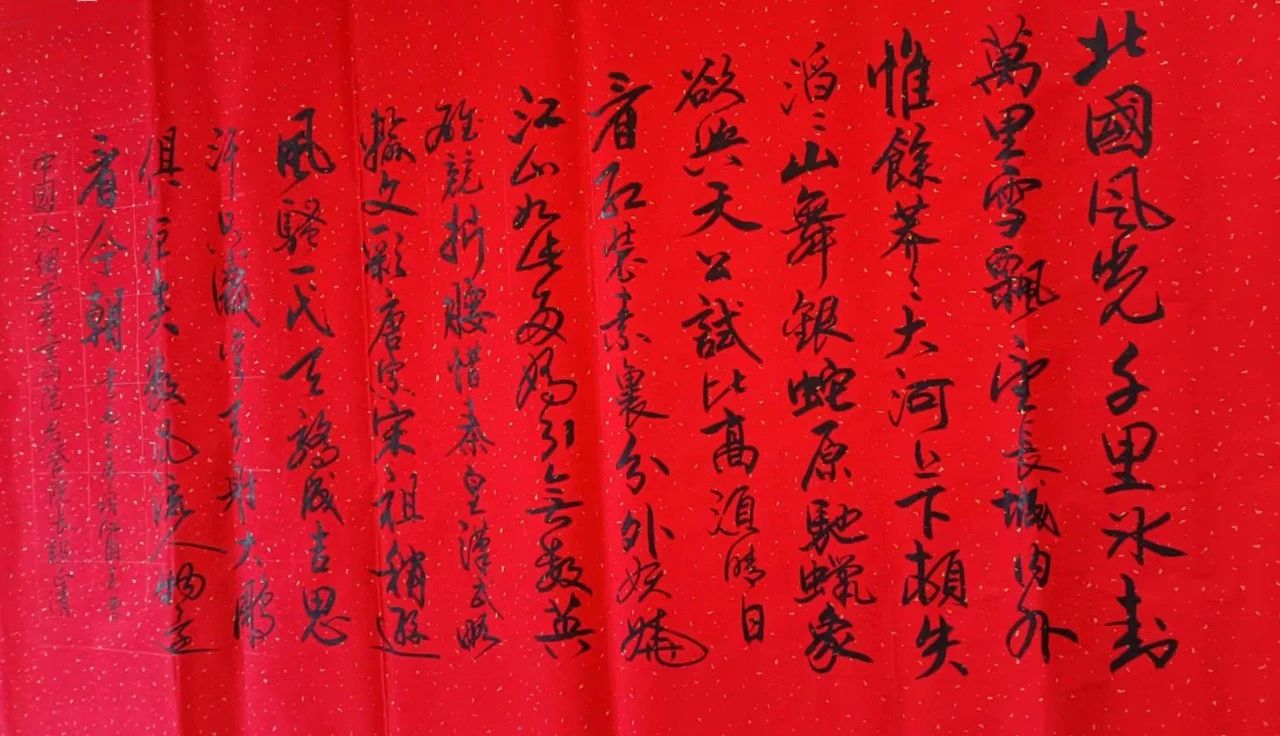 北國風光千里冰封
萬里雪飄望長城內外
惟餘莽〻大河上下頓失
滔〻山舞銀蛇原馳蠟象
欲與天公試比高須晴日
看紅裝素裹分外妖嬈
江山如此多嬌引無數英
雄競折腰惜秦皇漢武略
輸文彩唐宗宋祖稍遜
風騷一代天驕成吉思
汗只識彎弓射大鵰
俱往矣數風流人物還
看今朝
中國 書畫院